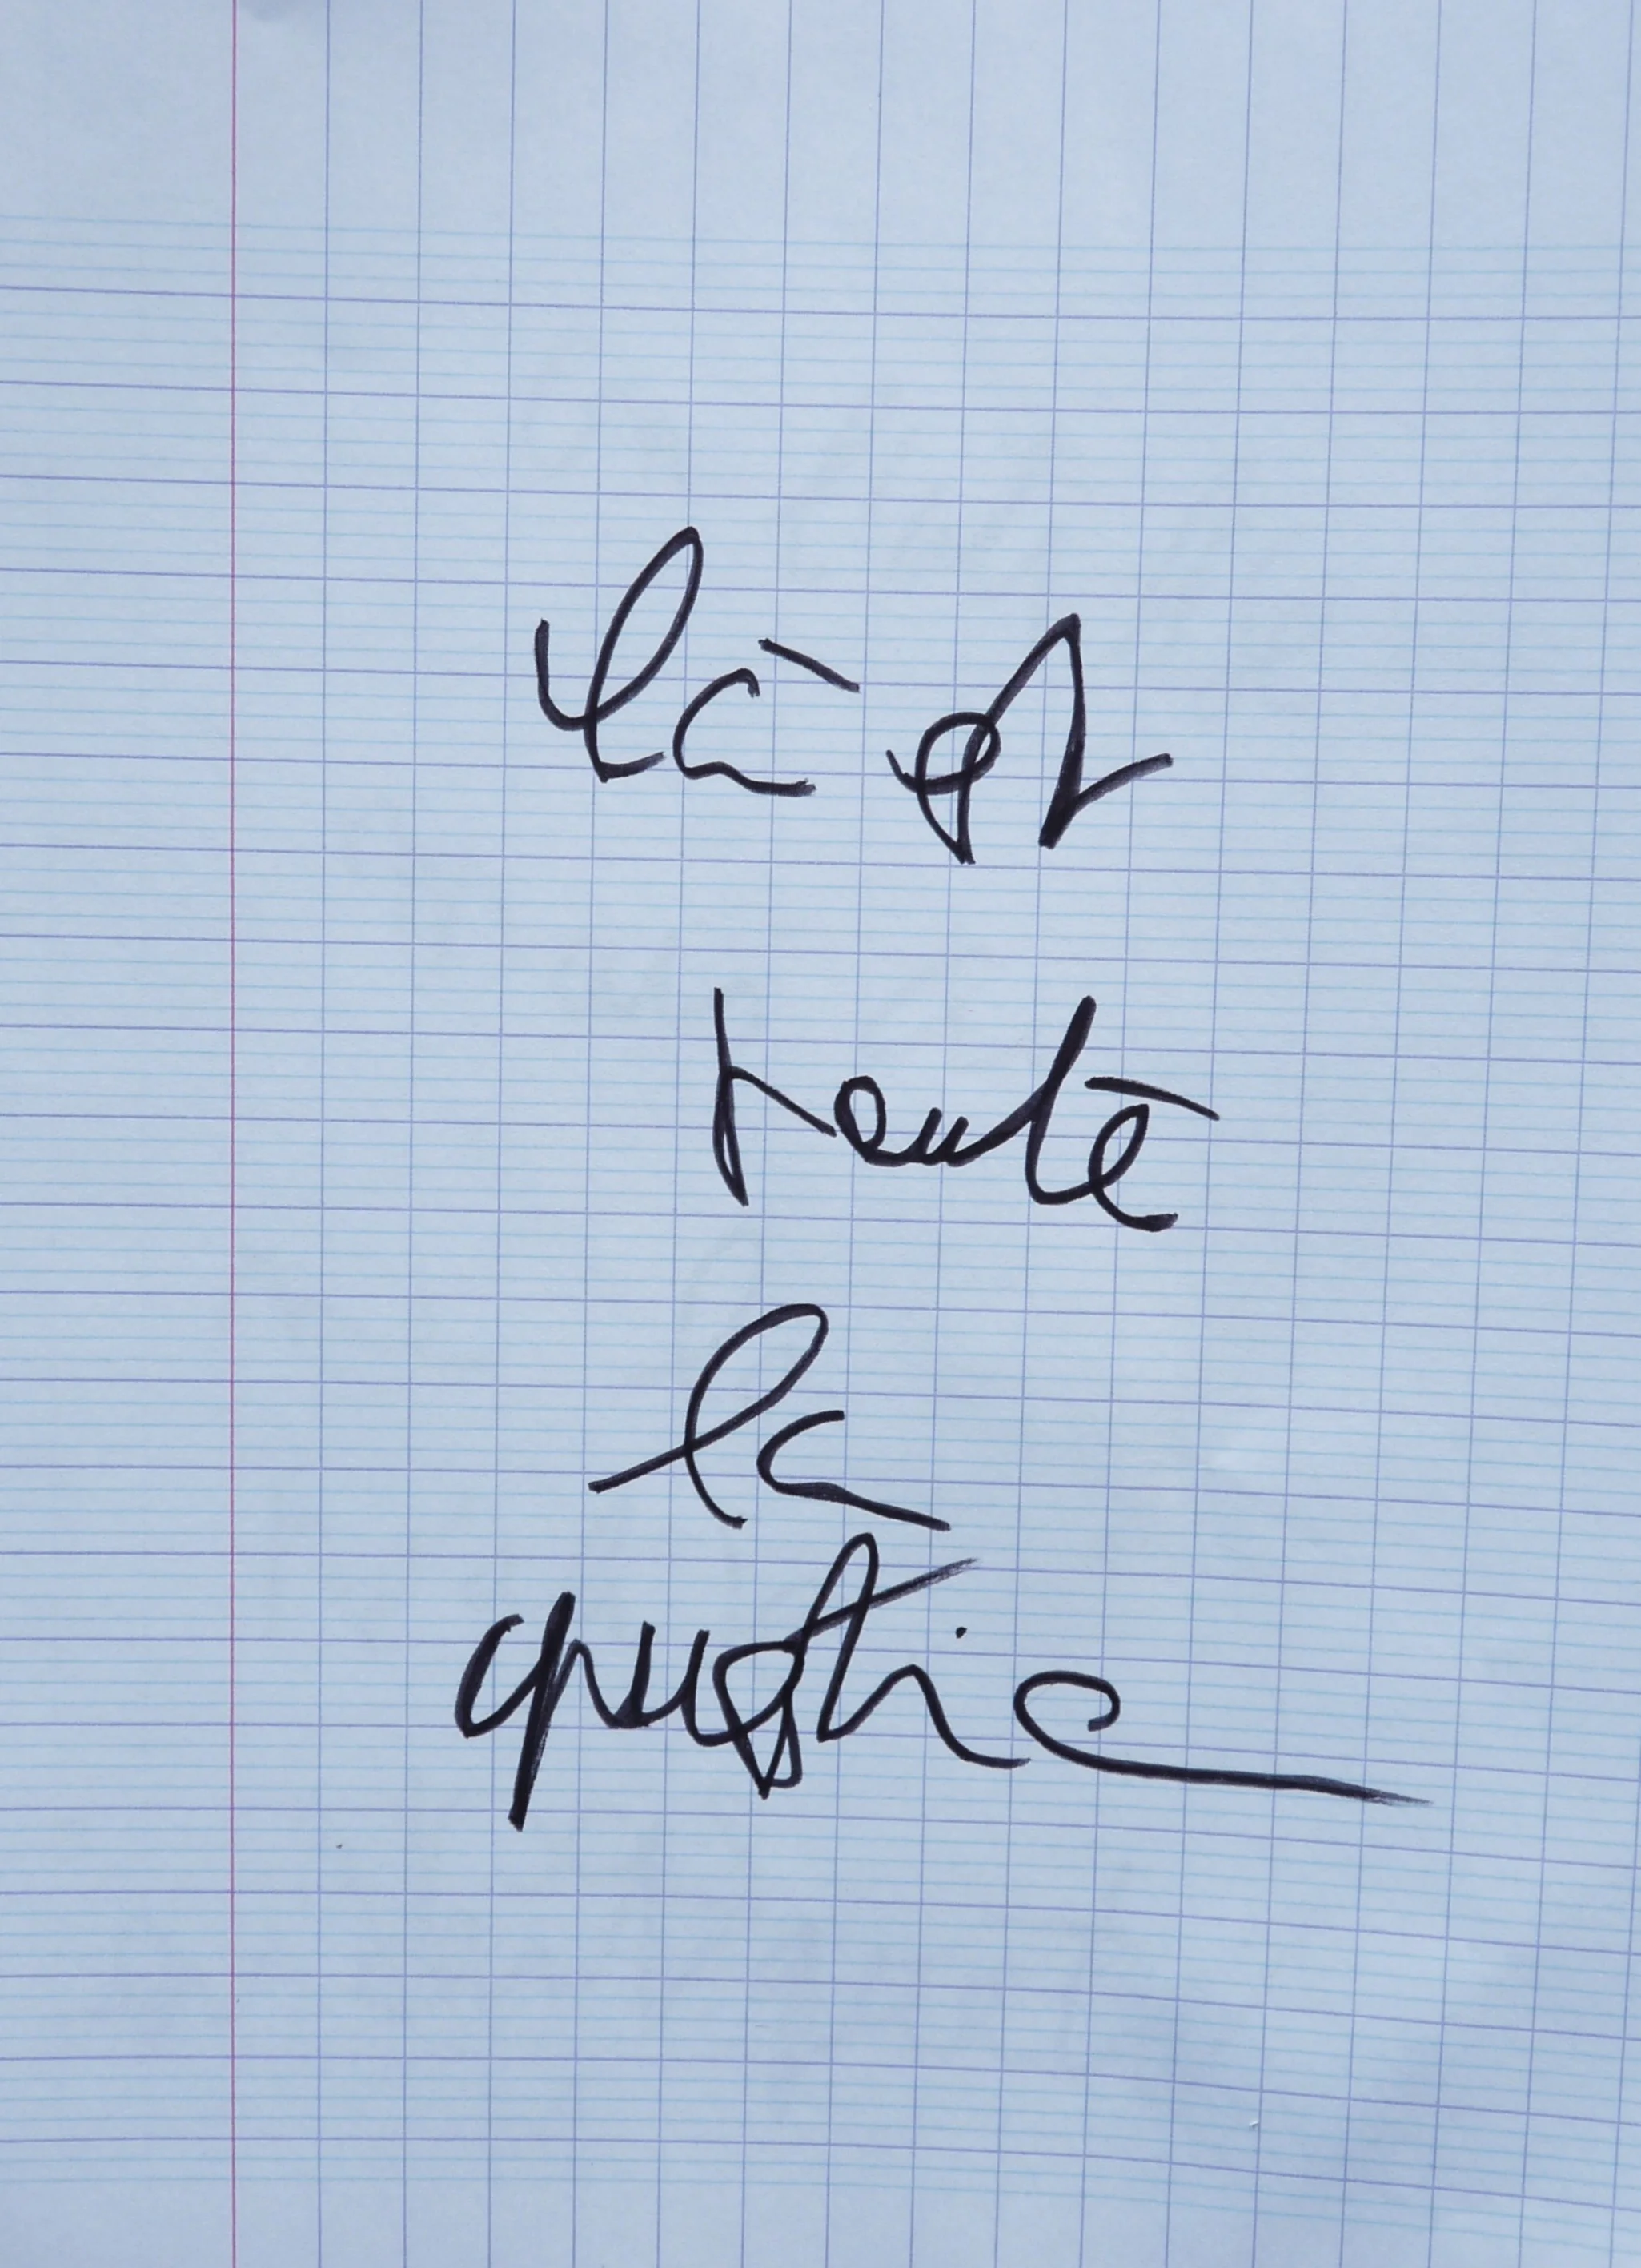 là est
toute
la
question